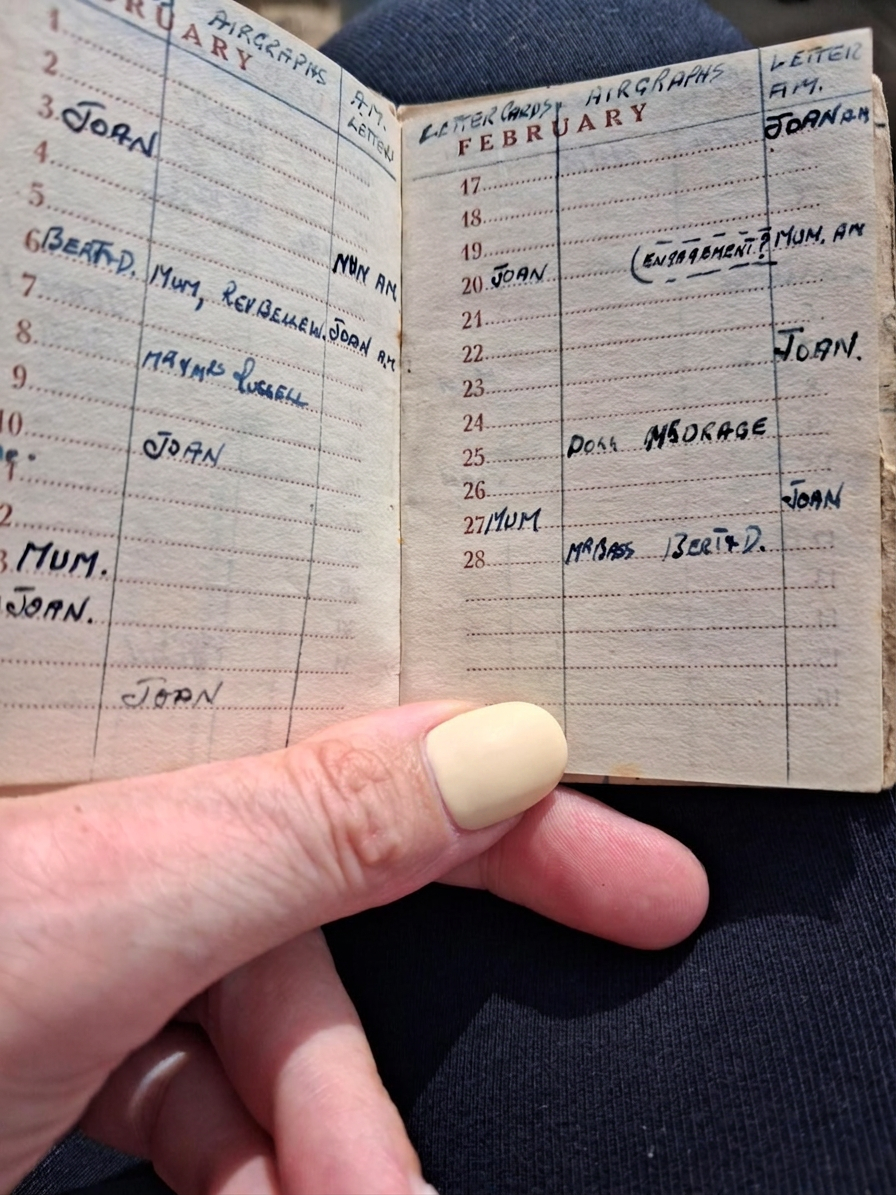 AIRGRAPHS A.M. LETTERS
RUARY
1
2
3. JOAN
4
5
6 BERT & D. MUM AM
7 MUM, REV BELLEW. JOAN AM
8
9 MR & MRS RUSSELL
10 JOAN
1
2
3. MUM.
JOAN.
JOAN
LETTER CARDS AIRGRAPHS LETTER AM.
FEBRUARY JOAN AM
17
18
19 (ENGAGEMENT? MUM. AM
20 JOAN
21
22 JOAN.
23
24
25 MSDRAGE
26 JOAN
27 MUM
28 MR BASS BERT & D.